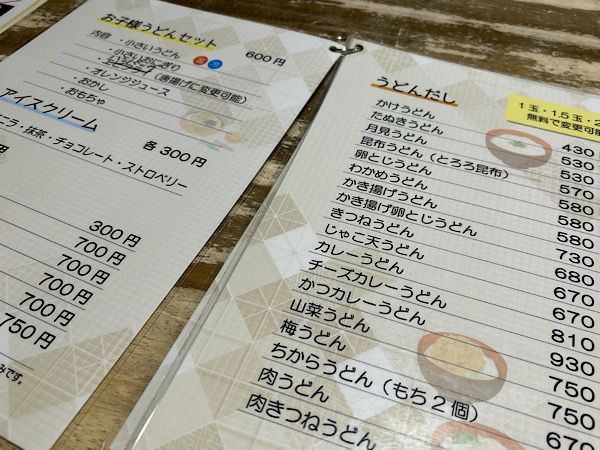 お子様うどんセット 600円
内容 ・小さいうどん
・小さいおにぎり
(唐揚げに変更可能)
・オレンジジュース
・おかし
・おもちゃ
アイスクリーム 各300円
ニラ・抹茶・チョコレート・ストロベリー
300円
700円
700円
700円
750円
みです。
うどんだし
1玉・1.5玉・2
無料で変更可能
かけうどん 430
たぬきうどん 530
月見うどん 530
昆布うどん(とろろ昆布) 570
卵とじうどん 580
わかめうどん 580
かき揚げうどん 580
かき揚げ卵とじうどん 730
きつねうどん 680
じゃこ天うどん 670
カレーうどん 670
チーズカレーうどん 810
かつカレーうどん 930
山菜うどん 750
梅うどん 750
ちからうどん(もち2個)
肉うどん
肉きつねうどん